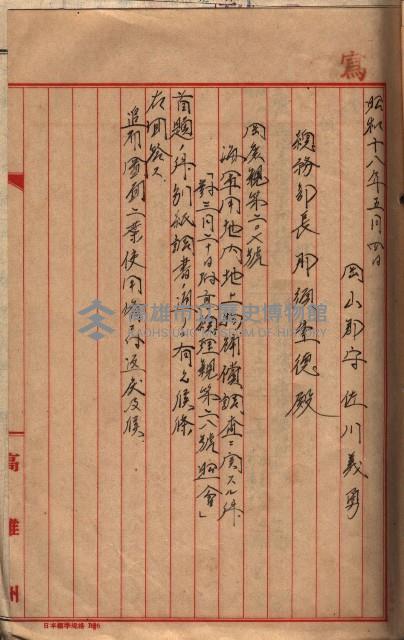 寫
昭和十八年五月四日
岡山郡守 佐川義勇
總務部長 那須重德殿
岡庶親第二〇七號
海軍用地內地上物補償調查ニ関スル件
「對三月二十日附高 經親第二八號照會」
首題ノ件別紙調書ノ通リ有之候條
右回答ス
追而圖面二葉使用後ハ返戾及候
高雄市立歷史博物館
KAOHSIUNG MUSEUM OF HISTORY
高雄州
日本標準規格 B5